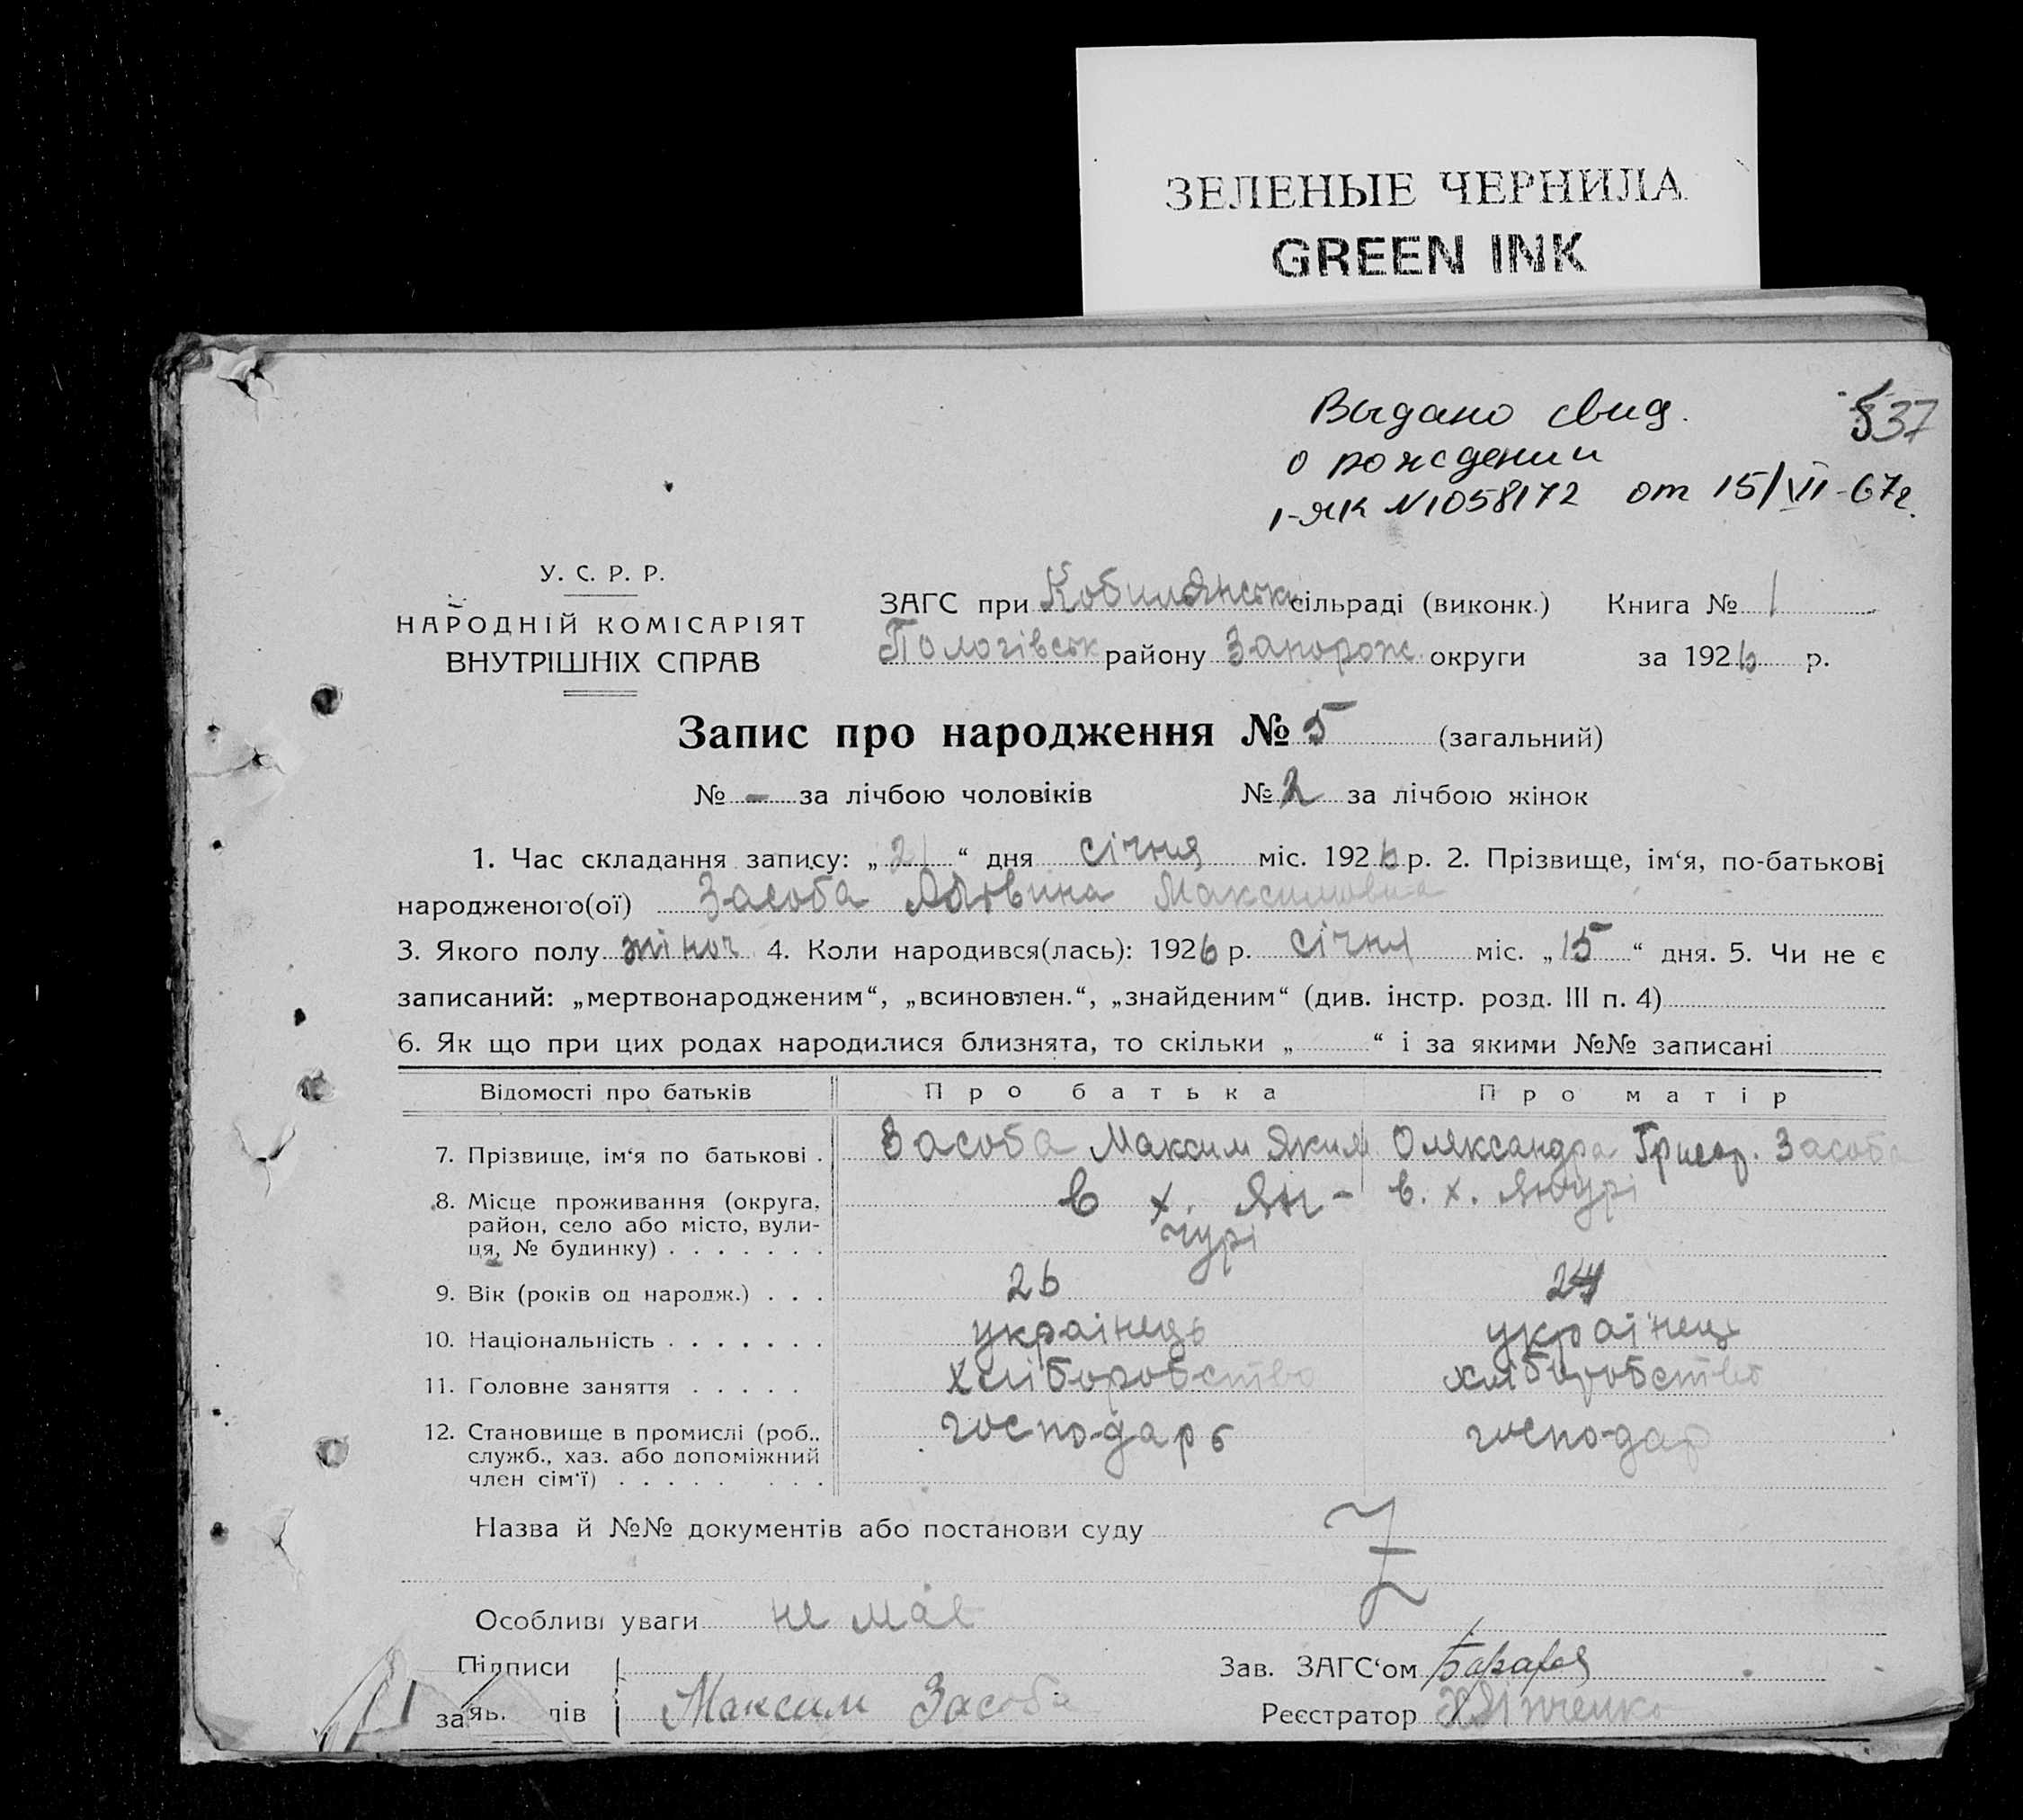 ЗЕЛЕНЫЕ ЧЕРНИЛА
GREEN INK
Выдано свид.
о рождении
I-ЯК №1058172 от 15/VII-67г.
537
У. С. Р. Р.
НАРОДНІЙ КОМІСАРІЯТ
ВНУТРІШНІХ СПРАВ
ЗАГС при Кобилянськ сільраді (виконк.) Книга № 1
Пологівськ району Запорож. округи за 1926 р.
Запис про народження № 5 (загальний)
№ - за лічбою чоловіків № 2 за лічбою жінок
1. Час складання запису: „21“ дня січня міс. 1926 р. 2. Прізвище, ім‘я, по-батькові
народженого(ої) Засоба Максимовна
3. Якого полу жіноч 4. Коли народився(лась): 1926 р. січня міс. „15“ дня. 5. Чи не є
записаний: „мертвонародженим“, „всиновлен.“, „знайденим“ (див. інстр. розд. III п. 4)
6. Як що при цих родах народилися близнята, то скільки „ “ і за якими №№ записані
Відомості про батьків Про батька Про матір
7. Прізвище, ім‘я по батькові . Засоба Максим Яким Олександра Григор. Засоба
8. Місце проживання (округа, в х. Ян- в. х. Янчурі
район, село або місто, вули- чурі
ця, № будинку) . . . . . . .
9. Вік (років од народж.) . . . 26 24
10. Національність . . . . . . . українець українець
11. Головне заняття . . . . . хліборобство хліборобство
12. Становище в промислі (роб., господарь господар
служб., хаз. або допоміжний
член сім‘ї) . . . . . . . .
Назва й №№ документів або постанови суду
Особливі уваги не має
Підписи Зав. ЗАГС‘ом
заяв. Максим Засоба Реєстратор